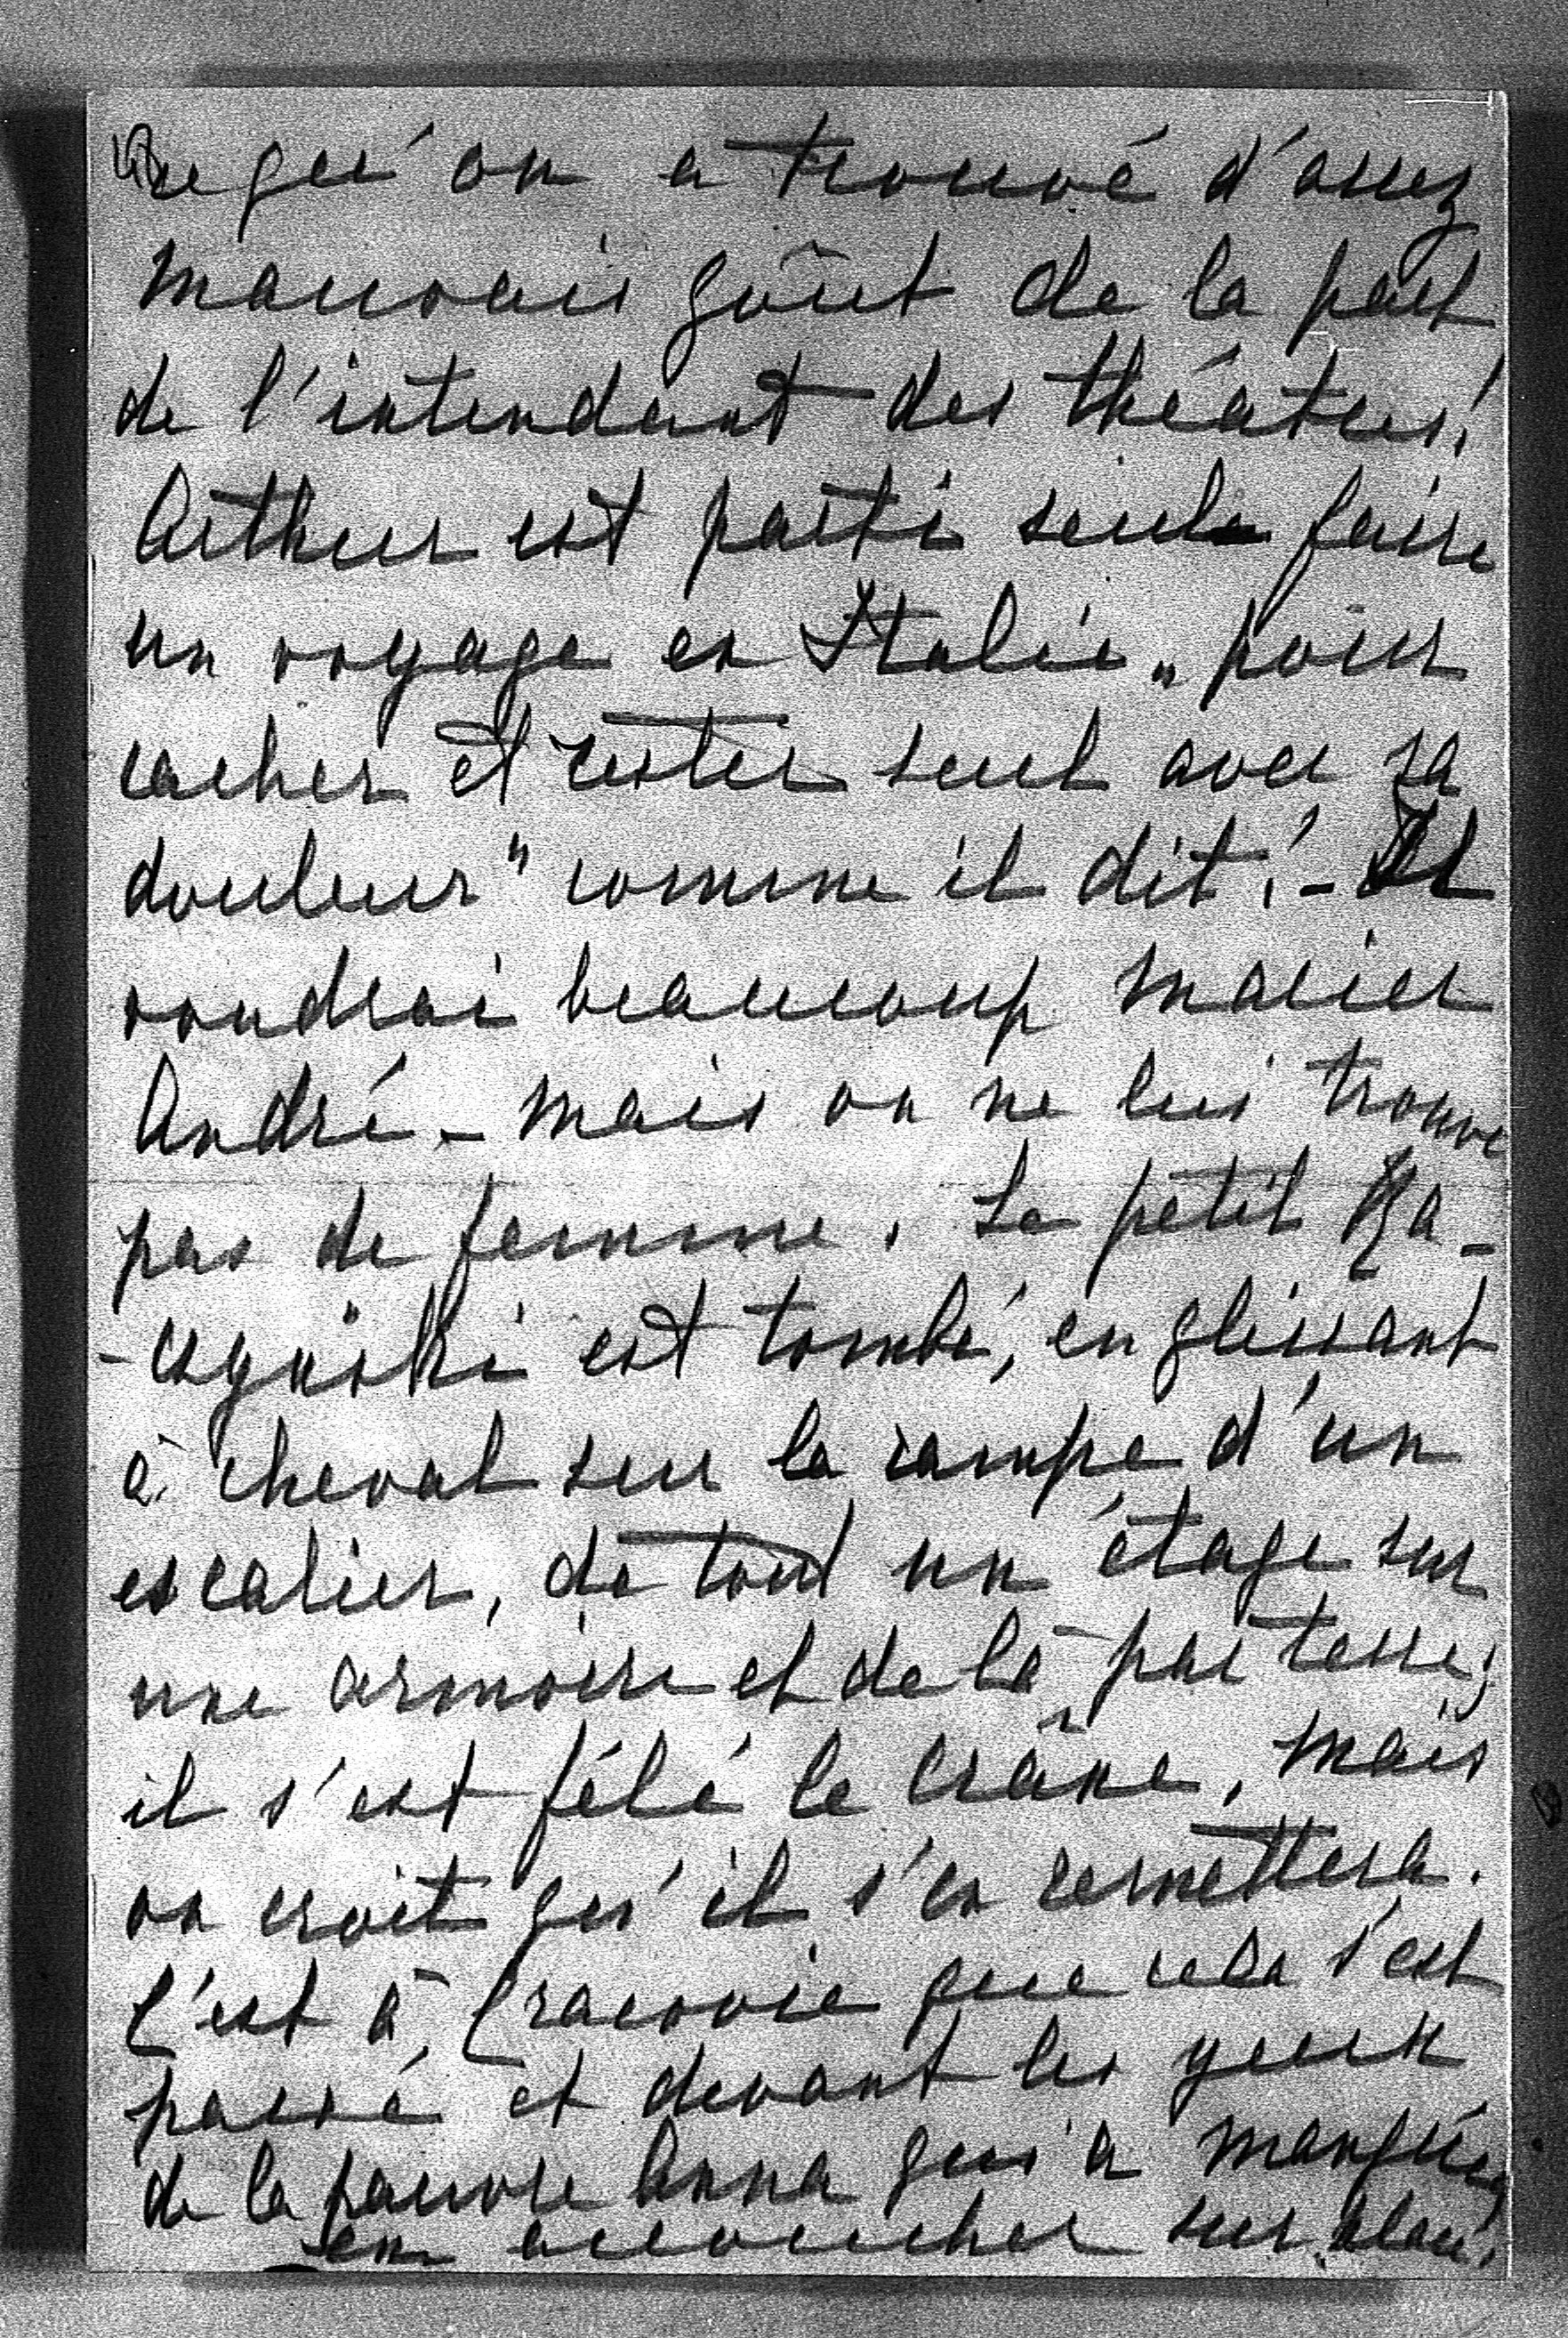 ce qu'on a trouvé d'assez
mauvais goût de la part
de l'intendant des théâtres!
Arthur est parti seul faire
un voyage en Italie „pour
cacher et rester seul avec sa
douleur" comme il dit! - Il
voudrai beaucoup marier
André - mais on ne lui trouve
pas de femme. Le petit Ra-
-czyński est tombé, en glissant
à cheval sur la rampe d'un
escalier, de tout un étage sur
une armoire et de là par terre;
il s'est fêlé le crâne, mais
on croit qu'il s'en remettera.
C'est à Cracovie que cela s'est
passé et devant les yeux
de la pauvre Anna qui a manqué
en accoucher sur place!